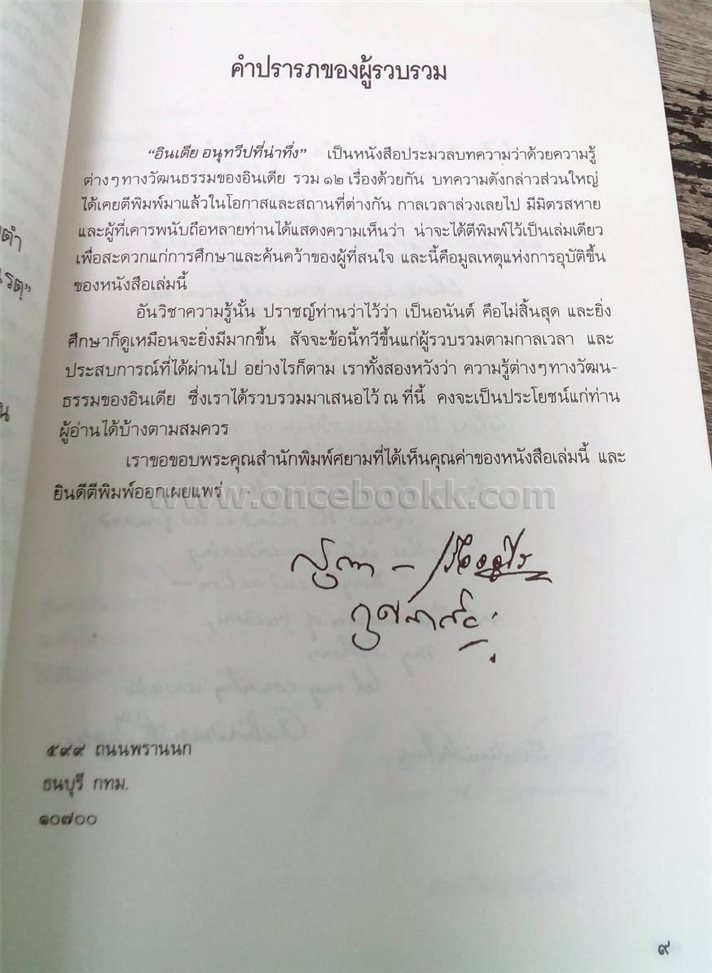 คำปรารภของผู้รวบรวม
“อินเดีย อนุทวีปที่น่าทึ่ง” เป็นหนังสือประมวลบทความว่าด้วยความรู้
ต่างๆทางวัฒนธรรมของอินเดีย รวม ๑๒ เรื่องด้วยกัน บทความดังกล่าวส่วนใหญ่
ได้เคยตีพิมพ์มาแล้วในโอกาสและสถานที่ต่างกัน กาลเวลาล่วงเลยไป มีมิตรสหาย
และผู้ที่เคารพนับถือหลายท่านได้แสดงความเห็นว่า น่าจะได้ตีพิมพ์ไว้เป็นเล่มเดียว
เพื่อสะดวกแก่การศึกษาและค้นคว้าของผู้ที่สนใจ และนี้คือมูลเหตุแห่งการอุบัติขึ้น
ของหนังสือเล่มนี้
อันวิชาความรู้นั้น ปราชญ์ท่านว่าไว้ว่า เป็นอนันต์ คือไม่สิ้นสุด และยิ่ง
ศึกษาก็ดูเหมือนจะยิ่งมีมากขึ้น สัจจะข้อนี้ทวีขึ้นแก่ผู้รวบรวมตามกาลเวลา และ
ประสบการณ์ที่ได้ผ่านไป อย่างไรก็ตาม เราทั้งสองหวังว่า ความรู้ต่างๆทางวัฒน-
ธรรมของอินเดีย ซึ่งเราได้รวบรวมมาเสนอไว้ ณ ที่นี้ คงจะเป็นประโยชน์แก่ท่าน
ผู้อ่านได้บ้างตามสมควร
เราขอขอบพระคุณสำนักพิมพ์ศยามที่ได้เห็นคุณค่าของหนังสือเล่มนี้ และ
ยินดีตีพิมพ์ออกเผยแพร่
www.oncebookk.com
๕๙๙ ถนนพรานนก
ธนบุรี กทม.
๑๐๗๐๐
๙